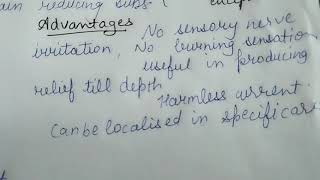 reducing subs. (
Advantages
No sensory nerve
irritation, No burning sensation
useful in producing
relief till depth
Harmless current.
Can be localised in specific